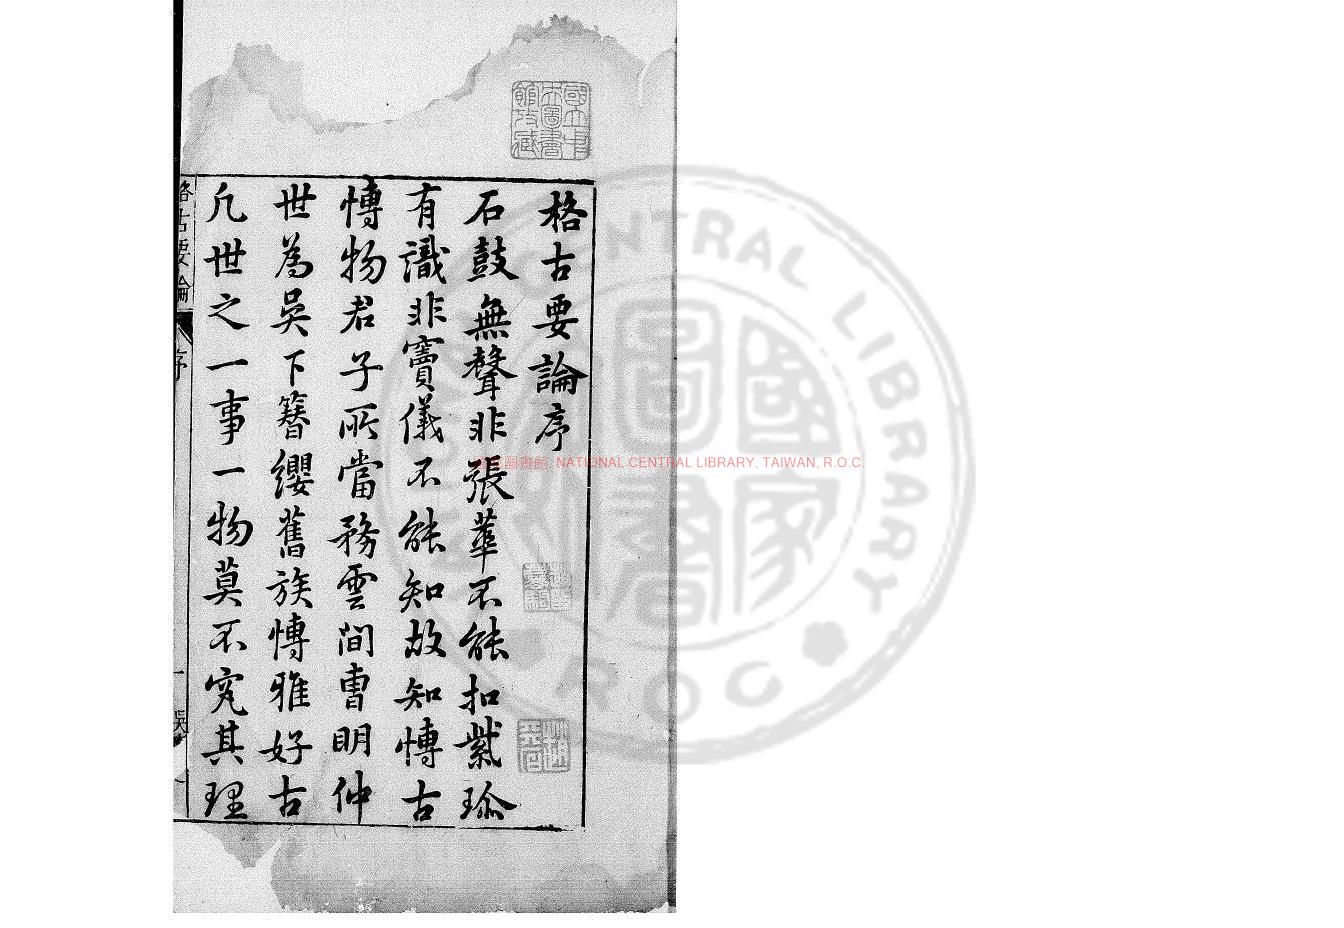 格古要論序
石鼓無聲非張華不能扣紫珍
有識非竇儀不能知故知博古
博物君子所當務雲間曹明仲
世為吳下簪纓舊族博雅好古
凡世之一事一物莫不究其理
格古要論
序
國立中央圖書館收藏
圖書館, NATIONAL CENTRAL LIBRARY, TAIWAN, R.O.C.
CENTRAL LIBRARY
R.O.C
國家圖書館